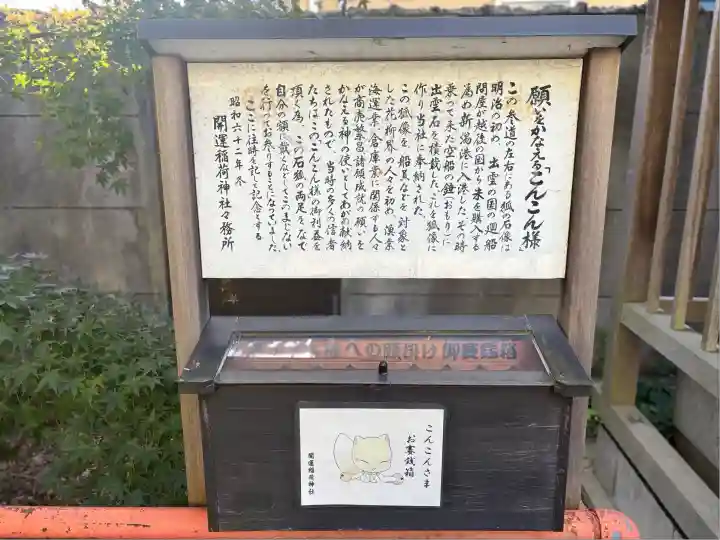 願いをかなえる「こんこん様」
この参道の左右にある狐の石像は
明治の初め、出雲の国の廻船
問屋が越後の国から米を購入する
為め新潟港に入港した。その時
乗って来た空船の錘(おもり)に
出雲石を積載した。これを狐像に
作り当社に奉納された。
この狐像を、船員などを対象と
した花柳界の人々を初め、漁業
海運業、倉庫業に関係する人々
が商売繁昌諸願成就の願いを
かなえる神の使いとしてあがめ献納
されたもので、当時の多くの信者
たちはこのこんこん様の御利益を
頂く為、この石狐の両足をなで
自分の額に戴くなどしてこのまじない
を行ってお参りすることになっていました。
ここに往時を記して記念とする
昭和六十二年 冬
開運稲荷神社々務所
への
御賽銭箱
こんこんさま
お賽銭箱
開運稲荷神社